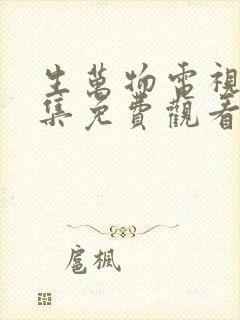 生萬物電視
集免費觀看
扈楓